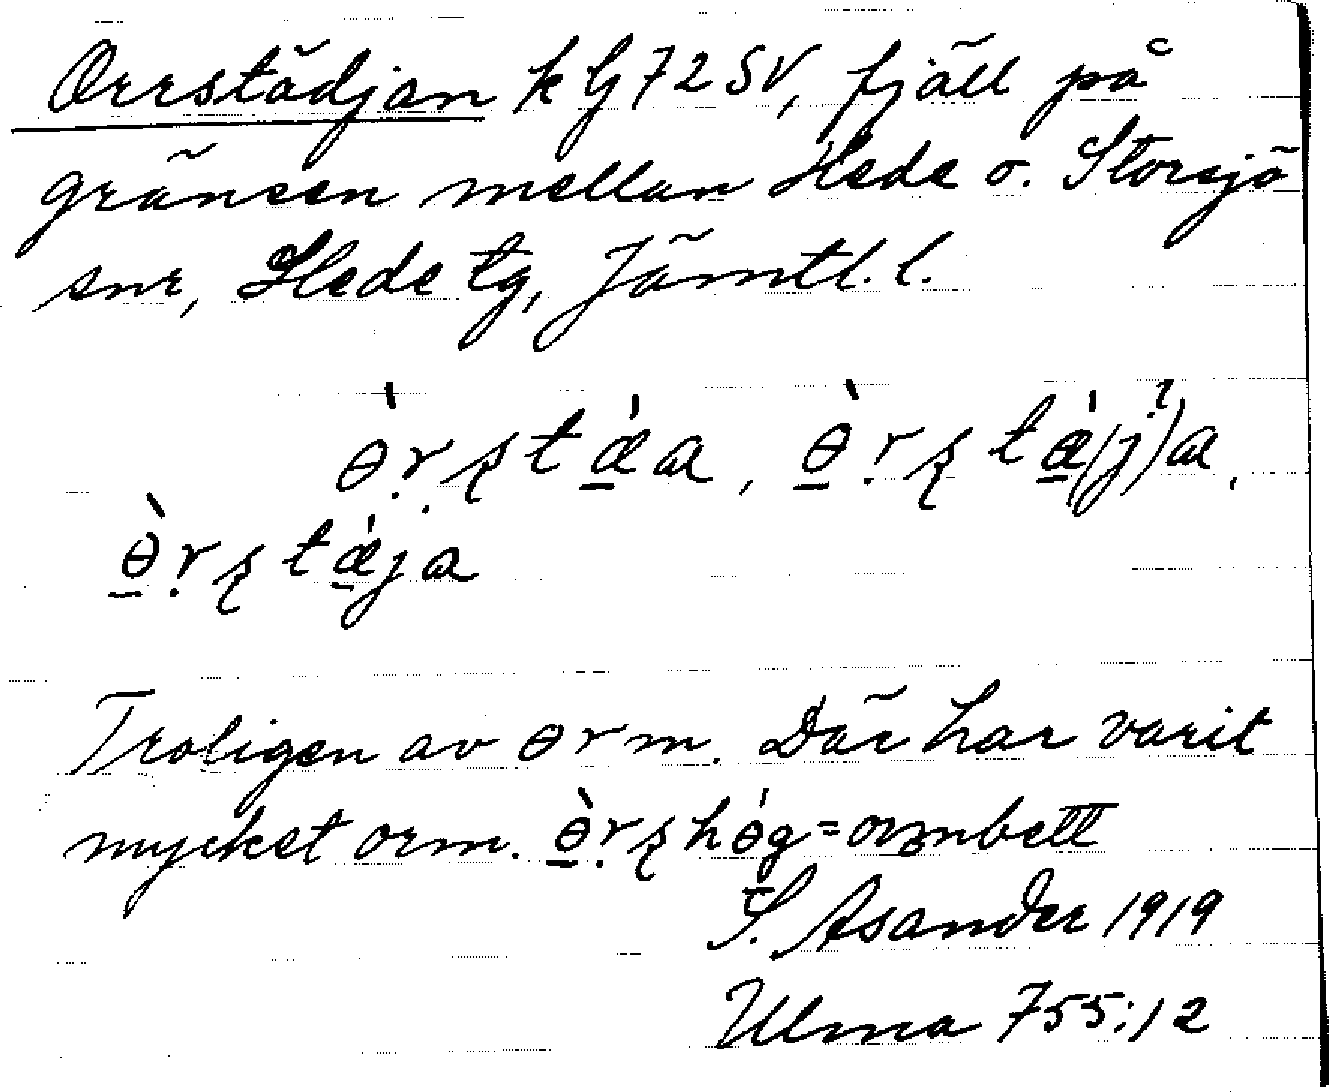 Orrstädjan k G72SV, fjäll på
gränsen mellan Hede o. Storsjö
snr, Hede tg, Jämtl. l.
ɵ̀r̤ʂtæ̠̀a, ɵ̠̀ṛʂtæ̠̀(j)̓a,
ɵ̠̀ṛʂtæ̠̀ja
Troligen av ɵrm. Där har varit
mycket orm. ɵ̠̀ṛʂhɵ́g = ormbett
S. Asander 1919
Ulma 755:12